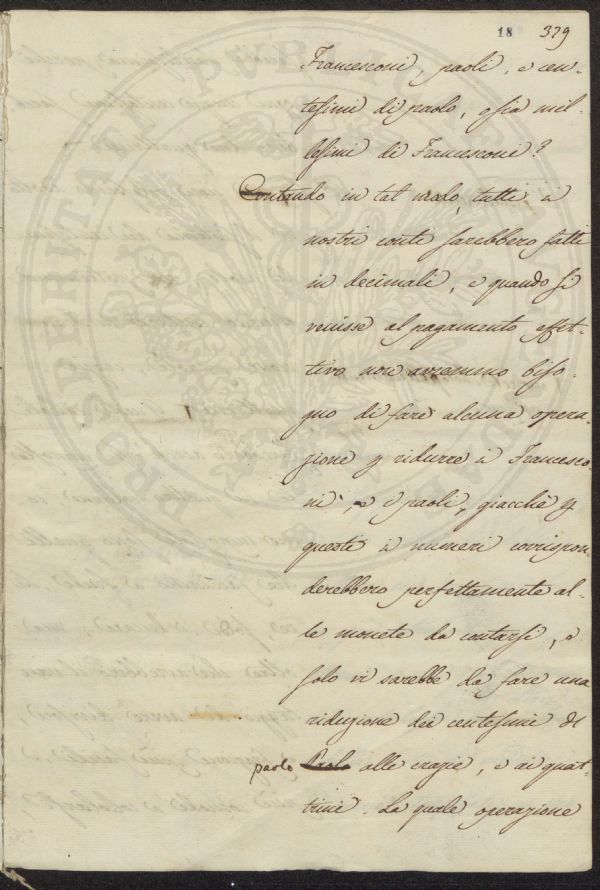 18 379
Francesconi, paoli, e cen-
tesimi di paolo, o sia mil-
lesimi di Francesconi?
Contando in tal modo, tutti i
nostri conti sarebbero fatti
in decimali, e quando si
venisse al pagamento effet-
tivo non avremmo biso-
gno di fare alcuna opera-
zione p ridurre i Francesco-
ni, e i paoli, giacchè p
queste i numeri corrispon
derebbero perfettamente al-
le monete da contarsi, e
solo vi sarebbe da fare una
riduzione dei centesimi di
paolo alle crazie, e ai quat-
trini. La quale operazione
PROSPERITATI PVBLICAE